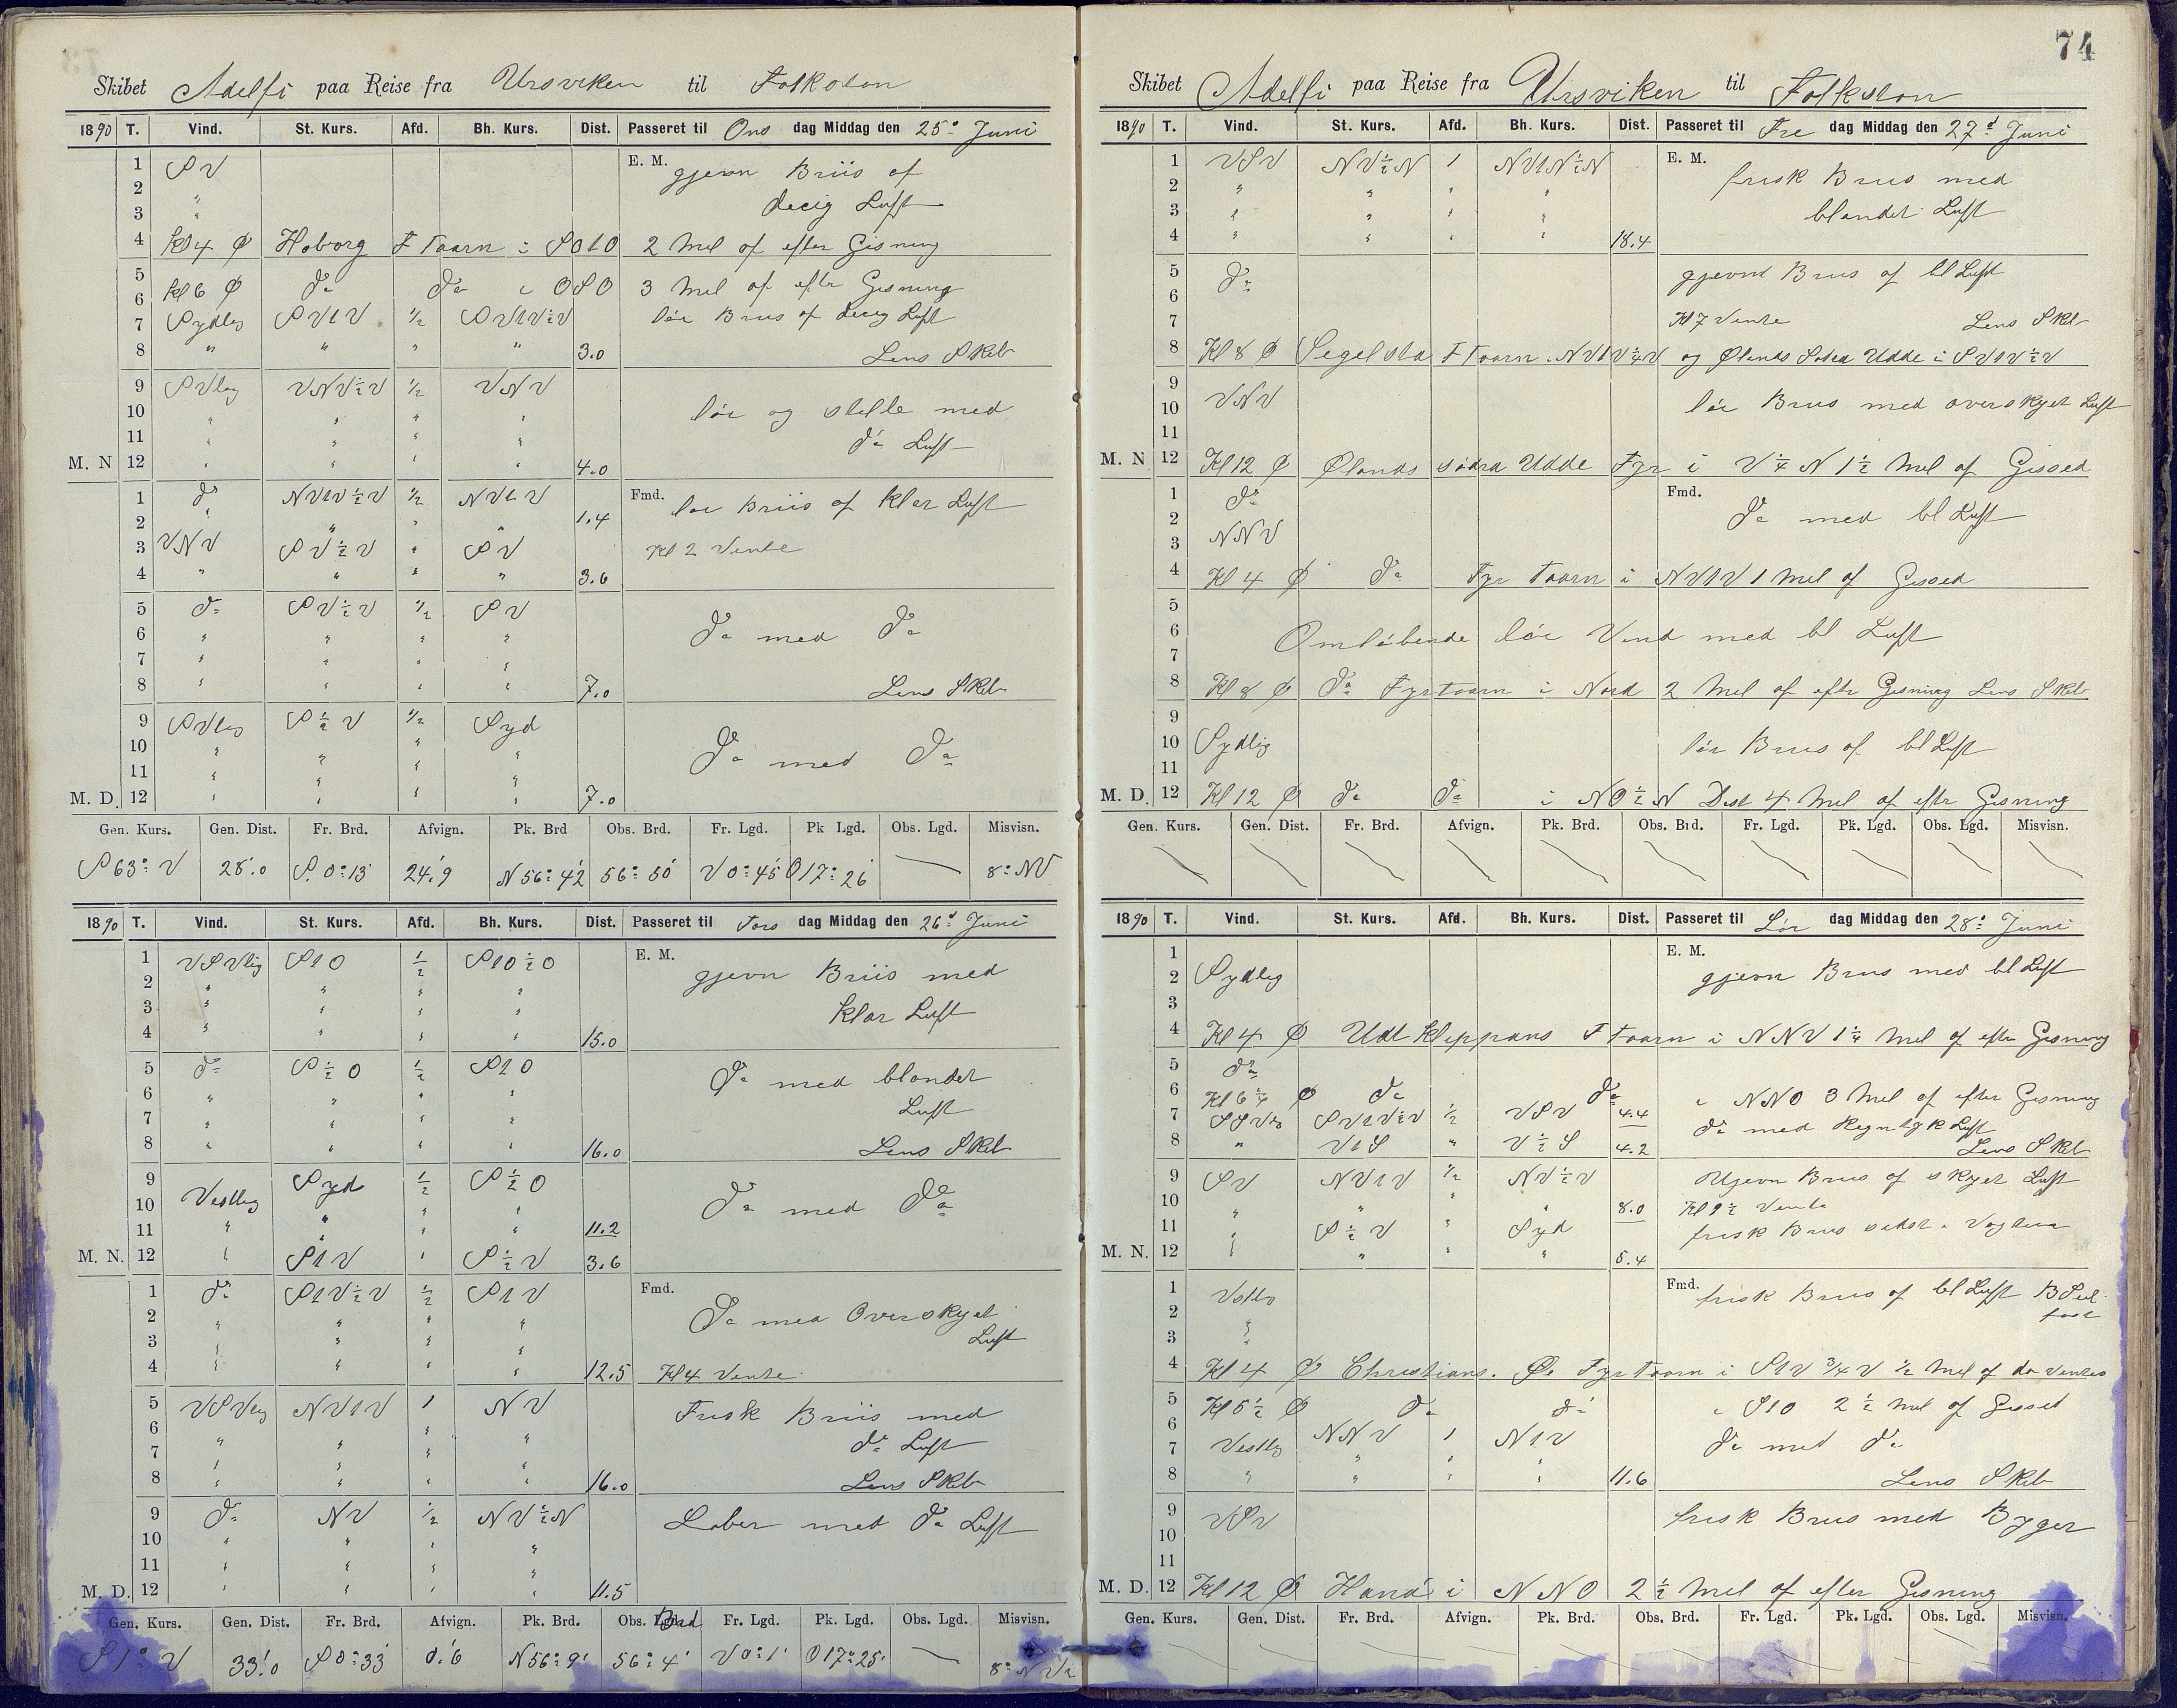 Skibet Adelfi paa Reise fra Ursviken til Folkston
1890 T. Vind. St. Kurs. Afd. Bh. Kurs. Dist. Passeret til Ons dag Middag den 25de Juni
1 SV E. M. gjevn Briis af
2 "
3 " decig Luft
4 Kl 4 Ø Hoborg F Taarn i SO t O 2 Mil af efter Gisning
5
6 Kl 6 Ø do do i OSO 3 Mil af efter Gisning
7 Sydlig SVtV 1/2 SVtV½V lør Briis af decig Luft
8 " " " " 3.0 Lens Skib
9 SVlig VNV½V 1/2 VNV
10 " " " " lør og stille med
11 " " " " do Luft
M. N 12 " " " " 4.0
1 do NVtV½V 1/2 NVtV Fmd. lør Briis af klar Luft
2 " " " " 1.4
3 VNV SV½V " SV Kl 2 Vente
4 " " " " 3.6
5 do SV½V 1/2 SV
6 " " " " do med do
7 " " " "
8 " " " " 7.0 Lens Skib
9 SVlig S½V 1/2 Syd
10 " " " " do med do
11 " " " "
M. D. 12 " " " " 7.0
Gen. Kurs. Gen. Dist. Fr. Brd. Afvign. Pk. Brd Obs. Brd. Fr. Lgd. Pk Lgd. Obs. Lgd. Misvisn.
S 63° V 28'.0 S. 0°13' 24'.9 N 56°42' 56°50' V 0°45' O 17°26' — 8° NV
1890 T. Vind. St. Kurs. Afd. Bh. Kurs. Dist. Passeret til Tors dag Middag den 26de Juni
1 VSVlig StO ½ StO½O E. M. gjevn Briis med
2 " " " "
3 " " " " klar Luft
4 " " " " 15.0
5 do S½O ½ StO do med blandet
6 " " " "
7 " " " " Luft
8 " " " " 16.0 Lens Skib
9 Syd ½ S½O
10 Vestlig " " " do med do
11 " " " " 11.2
M. N. 12 " StV " S½V 3.6
1 do StV½V ½ StV Fmd. do med Overskyet
2 " " " "
3 " " " " Luft
4 " " " " 12.5 Kl 4 Vente
5 VSVlig NVtV 1 NV Frisk Briis med
6 " " " " do Luft
7 " " " "
8 " " " " 16.0 Lens Skib
9 do NV ½ NV½N Laber med do Luft
10 " " " "
11 " " " "
M. D. 12 " " " " 11.5
Gen. Kurs. Gen. Dist. Fr. Brd. Afvign. Pk. Brd. Obs. Lgd. Brd Fr. Lgd. Pk. Lgd. Obs. Lgd. Misvisn.
S 1° V 33'.0 S 0°33' 0'.6 N 56°9' 56°4' V 0°1' O 17°25' — 8° NV
74
Skibet Adelfi paa Reise fra Ursviken til Folkston
1890 T. Vind. St. Kurs. Afd. Bh. Kurs. Dist. Passeret til Fre dag Middag den 27de Juni
1 VSV NV½N 1 NVtN½N E. M. frisk Briis med
2 " " " "
3 " " " " blandet Luft
4 " " " " 18.4
5 do gjevnt Briis af bl Luft
6
7 Kl 7 Vente Lens Skib
8 Kl 8 Ø Segelsta F Taarn i NVtV¼V og Ølands Södra Udde i SVtV½V
9
10 VNV lør Briis med overskyet Luft
11
M. N 12 Kl 12 Ø Ølands södra Udde Fyr i V¼N 1½ Mil af Gisset
1 do Fmd. do med bl Luft
2
3 NNV
4 Kl 4 Ø do Fyr Taarn i NVtV 1 Mil af Gisset
5
6 Omløbende lør Vind med bl Luft
7
8 Kl 8 Ø do Fyrtaarn i Nord 2 Mil af eftr Gisning Lens Skib
9
10 Sydlig lør Briis af bl Luft
11
M. D. 12 Kl 12 Ø do do i NO½N Dist 4 Mil af eftr Gisning
Gen. Kurs. Gen. Dist. Fr. Brd. Afvign. Pk. Brd. Obs. Brd. Fr. Lgd. Pk. Lgd. Obs. Lgd. Misvisn.
1890 T. Vind. St. Kurs. Afd. Bh. Kurs. Dist. Passeret til Lør dag Middag den 28de Juni
1 E. M.
2 Sydlig gjevn Briis med bl Luft
3
4 Kl 4 Ø Udklippans F Taarn i NNV 1¼ Mil af eftr Gisning
5 do
6 Kl 6 Ø do do i NNO 3 Mil af efter Gisning
7 SSV SVtV½V ½ VSV 4.4 do med Regn tyk Luft
8 " VtS " V½S 4.2 Lens Skib
9 SV NVtV ½ NV½V Ugjevn Briis af skyet Luft
10 " " " " 8.0 Kl 9½ Vente
11 " S½V " Syd frisk Briis sidst i Vagten
M. N. 12 " " " " 5.4
1 Vestlig Fmd. frisk Briis af bl Luft
2 "
3 "
4 Kl 4 Ø Christians Ø Fyr Taarn i StV¾V ½ Mil af da Ventes
5 Kl 5½ Ø do do i StO 2½ Mil af Gisset
6 NNV 1 NtV
7 Vestlig " " " do med do
8 " " " " 11.6 Lens Skib
9 VSV frisk Briis med Byger
10
11
M. D. 12 Kl 12 Ø Hanö i NNO 2½ Mil af efter Gisning
Gen. Kurs. Gen. Dist. Fr. Brd. Afvign. Pk. Brd. Obs. Brd. Fr. Lgd. Pk. Lgd. Obs. Lgd. Misvisn.